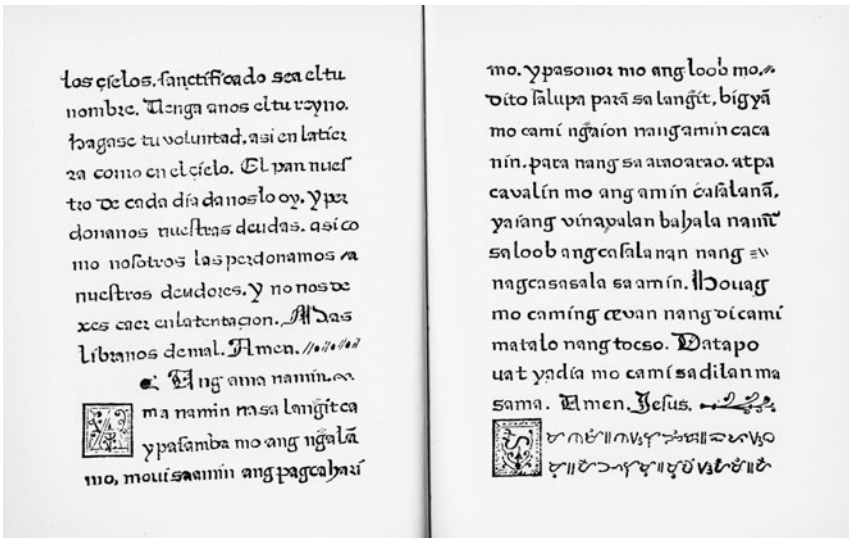 los çielos. ſanctificado sea el tu
nombre. Uenga anos el tu reyno.
hagase tu voluntad, asi en la tier
ra como en el çielo. El pan nueſ
tro de cada dia da nos lo oy. Y per
donanos nueſtras deudas. asi co
mo noſotros las perdonamos a
nueſtros deudores. Y no nos de
xes caer en la tentaçion. Mas
libranos de mal. Amen.
Ang ama namin.
A ma namin nasa langit ca
ypaſamba mo ang ngalã
mo, moui sa amin ang pagcahari
mo. Ypasonor mo ang loob mo.
Dito ſa lupa parã sa langit, bigyã
mo cami ngaion nang amin caca
nin. para nang sa arao arao. at pa
cavalin mo ang amin caſalanã,
ya iang vinavalan bahala namĩ
sa loob ang caſalanan nang
nagcasasala sa amin. Houag
mo caming æwan nang di cami
matalo nang tocso. Datapo
uat yadia mo cami sa dilan ma
sama. Amen. Jeſus.